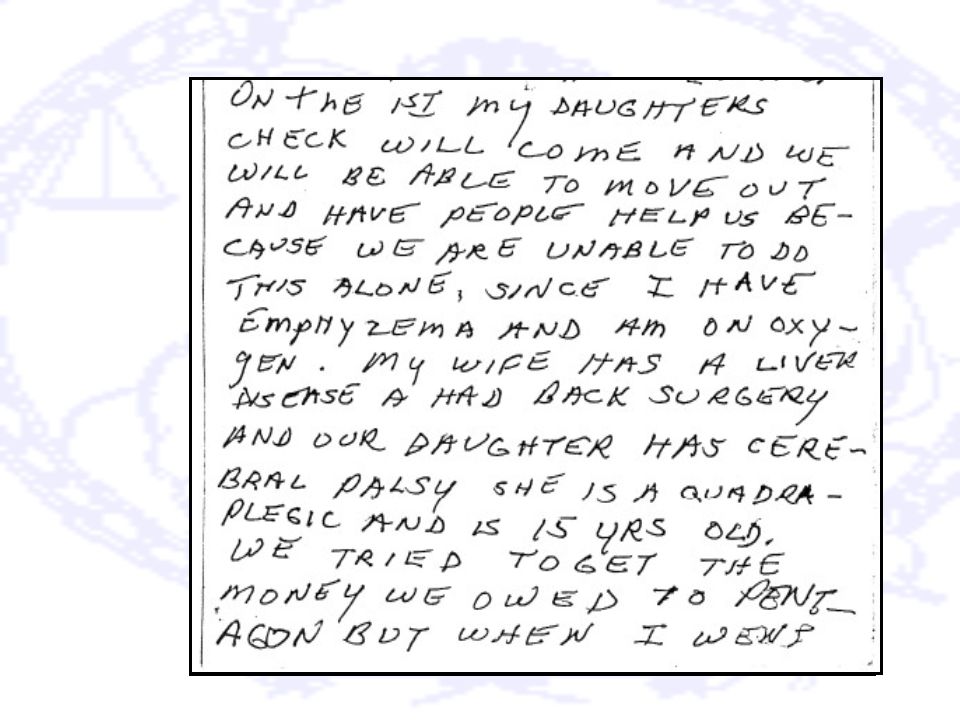 ON thE 1ST my DAUGHTERS
CHECK WILL COME AND WE
WILL BE ABLE TO MOVE OUT
AND HAVE PEOPLE HELP US BE-
CAUSE WE ARE UNABLE TO DO
THIS ALONE, SINCE I HAVE
EmpHyZEMA AND AM ON OXY-
gEN. MY WIFE HAS A LIVER
DISEASE A HAD BACK SURGERY
AND OUR DAUGHTER HAS CERE-
BRAL PALSY SHE IS A QUADRA-
PLEGIC AND IS 15 YRS OLD.
WE TRIED TO GET THE
MONEY WE OWED TO PENT-
AGON BUT WHEN I WENT